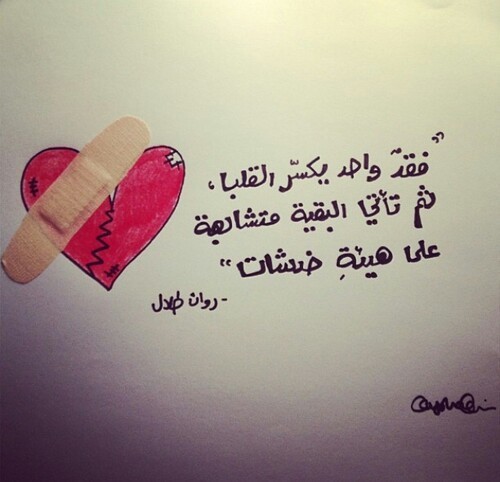 "فقدٌ واحد يكسّر القلب،
ثم تأتي البقية متشابهة
على هيئةِ خدشات"
- روان طلال